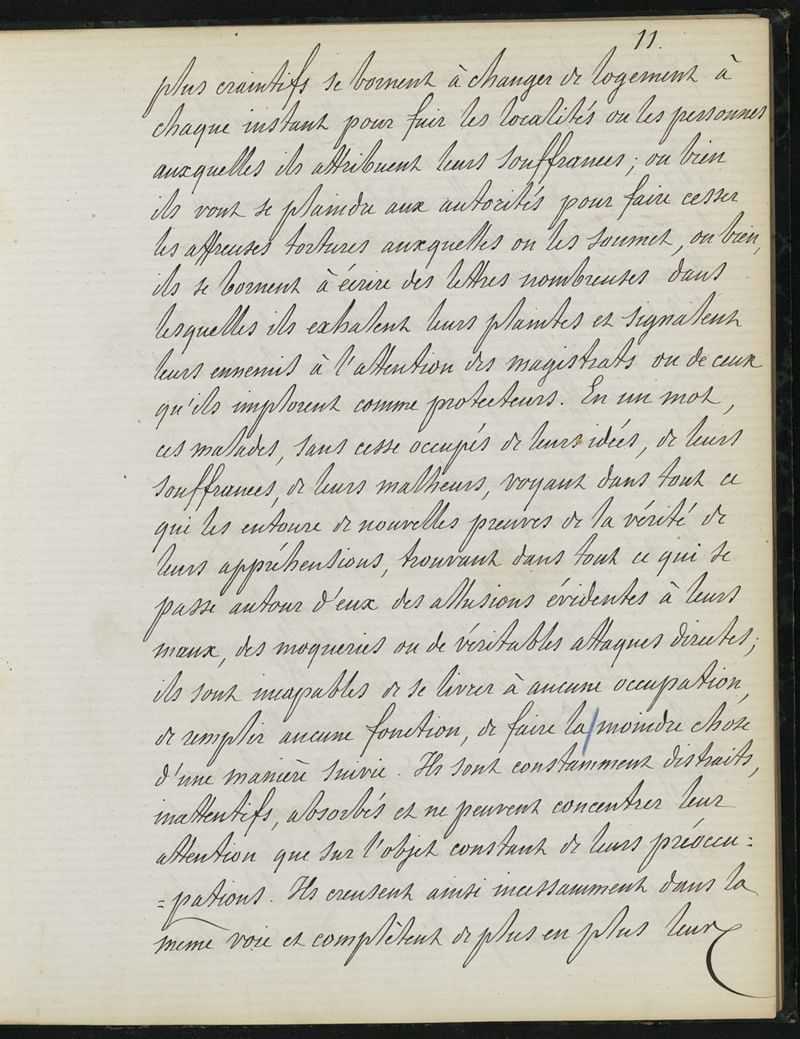 11.
plus craintifs se bornent à changer de logement à
chaque instant pour fuir les localités ou les personnes
auxquelles ils attribuent leurs souffrances; ou bien
ils vont se plaindre aux autorités pour faire cesser
les affreuses tortures auxquelles on les soumet, ou bien,
ils se bornent à écrire des lettres nombreuses dans
lesquelles ils exhalent leurs plaintes et signalent
leurs ennemis à l'attention des magistrats ou de ceux
qu'ils implorent comme protecteurs. En un mot,
ces malades, sans cesse occupés de leurs idées, de leurs
souffrances, de leurs malheurs, voyant dans tout ce
qui les entoure de nouvelles preuves de la vérité de
leurs appréhensions, trouvant dans tout ce qui se
passe autour d'eux des allusions évidentes à leurs
maux, des moqueries ou de véritables attaques directes;
ils sont incapables de se livrer à aucune occupation,
de remplir aucune fonction, de faire la moindre chose
d'une manière suivie. Ils sont constamment distraits,
inattentifs, absorbés et ne peuvent concentrer leur
attention que sur l'objet constant de leurs préoccu=
=pations. Ils creusent ainsi incessamment dans la
même voie et complètent de plus en plus leur